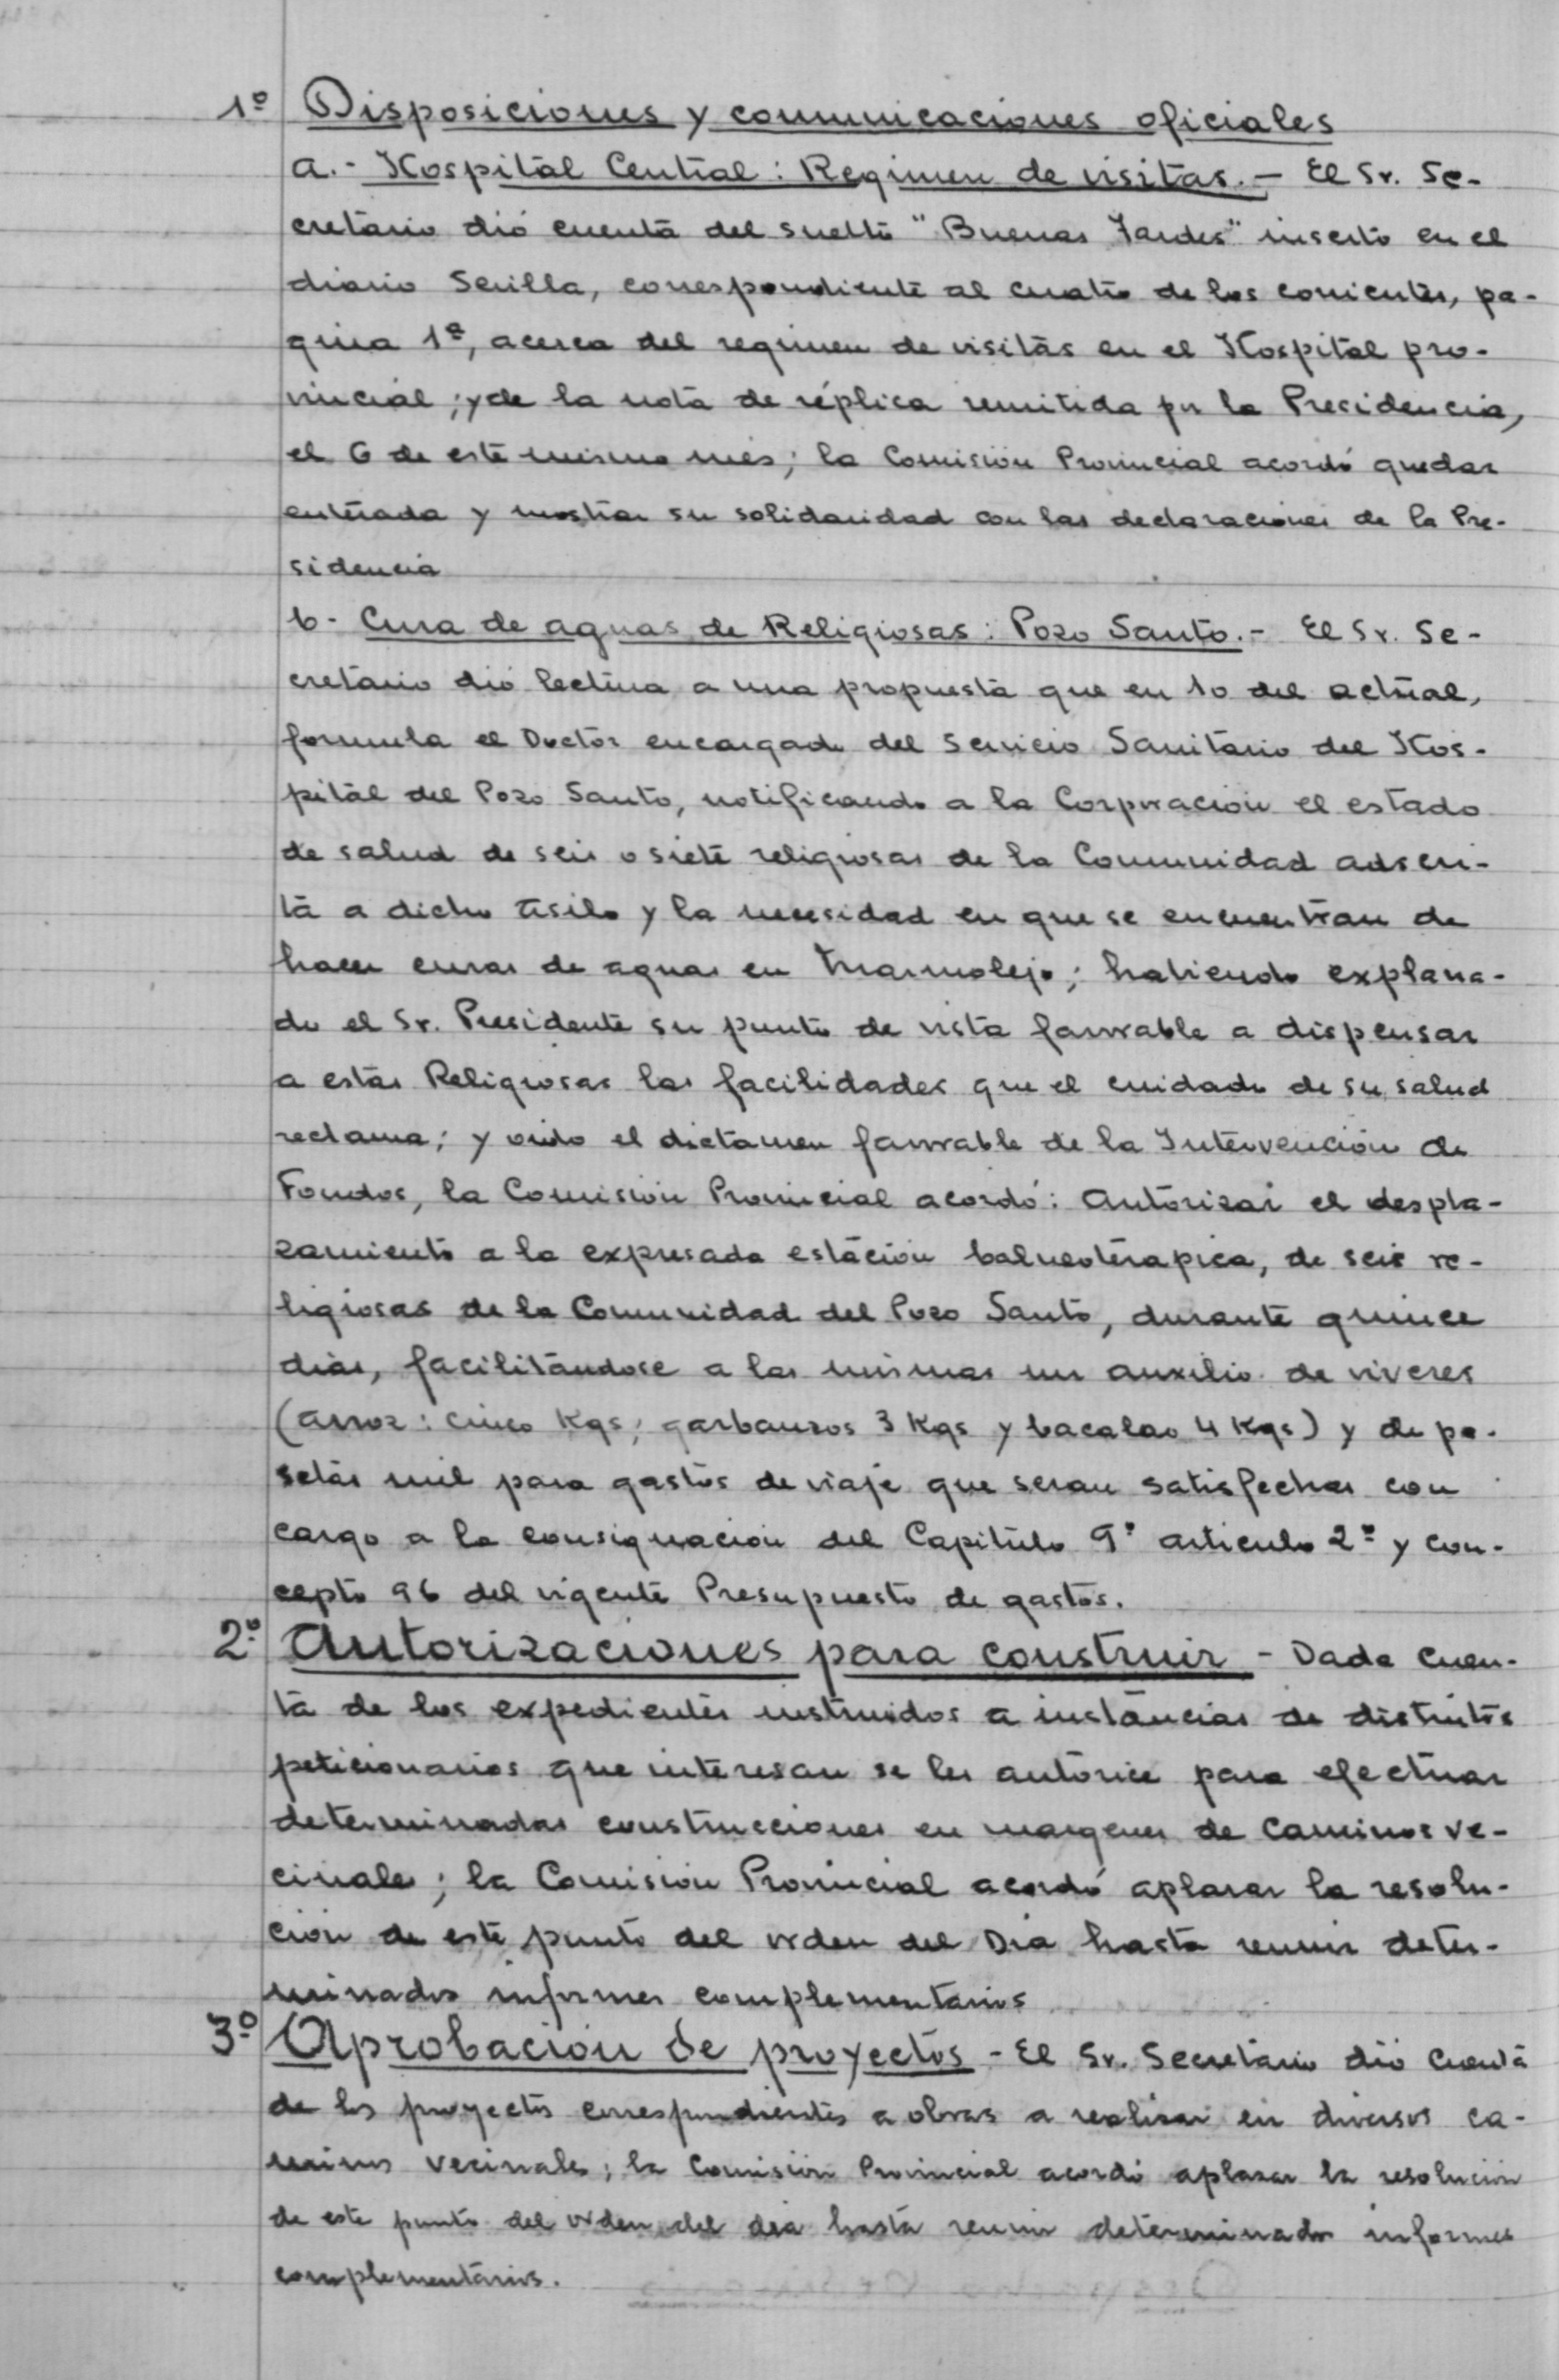 1º Disposiciones y comunicaciones oficiales
a.- Hospital Central: Regimen de visitas.- El Sr. Se-
cretario dió cuenta del suelto "Buenas Tardes" inserto en el
diario Sevilla, correspondiente al cuatro de los corrientes, pa-
gina 1ª, acerca del regimen de visitas en el Hospital pro-
vincial; y de la nota de réplica remitida por la Presidencia,
el 6 de este mismo mes; la Comisión Provincial acordó quedar
enterada y mostrar su solidaridad con las declaraciones de la Pre-
sidencia
b- Cura de aguas de Religiosas: Pozo Santo.- El Sr. Se-
cretario dió lectura a una propuesta que en 10 del actual,
formula el Doctor encargado del Servicio Sanitario del Hos-
pital del Pozo Santo, notificando a la Corporación el estado
de salud de seis o siete religiosas de la Comunidad adscri-
ta a dicho Asilo y la necesidad en que se encuentran de
hacer curas de aguas en Marmolejo; habiendo explana-
do el Sr. Presidente su punto de vista favorable a dispensar
a estas Religiosas las facilidades que el cuidado de su salud
reclama; y oido el dictamen favorable de la Intervención de
Fondos, la Comisión Provincial acordó: Autorizar el despla-
zamiento a la expresada estación balneoterapica, de seis re-
ligiosas de la Comunidad del Pozo Santo, durante quince
dias, facilitándose a las mismas un auxilio de viveres
(arroz: cinco Kgs; garbanzos 3 Kgs y bacalao 4 Kgs) y de pe-
setas mil para gastos de viaje que seran satisfechas con
cargo a la consignación del Capitulo 9º articulo 2º y con-
cepto 96 del vigente Presupuesto de gastos.
2º Autorizaciones para construir - Dada cuen-
ta de los expedientes instruidos a instancias de distintos
peticionarios que interesan se les autorice para efectuar
determinadas construcciones en margenes de caminos ve-
cinales; la Comisión Provincial acordó aplazar la resolu-
ción de este punto del orden del Dia hasta reunir deter-
minados informes complementarios
3º Aprobación de proyectos - El Sr. Secretario dió cuenta
de los proyectos correspondientes a obras a realizar en diversos ca-
minos vecinales; la Comisión Provincial acordó aplazar la resolución
de este punto del orden del dia hasta reunir determinados informes
complementarios.